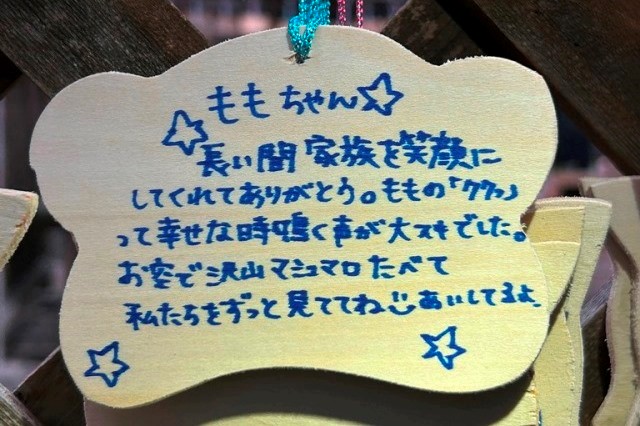 ももちゃん☆
☆長い間家族を笑顔に
してくれてありがとう。ももの「ククッ」
って幸せな時鳴く声が大スキでした。
お空で沢山マシュマロたべて
私たちをずっと見ててね あいしてるよ。